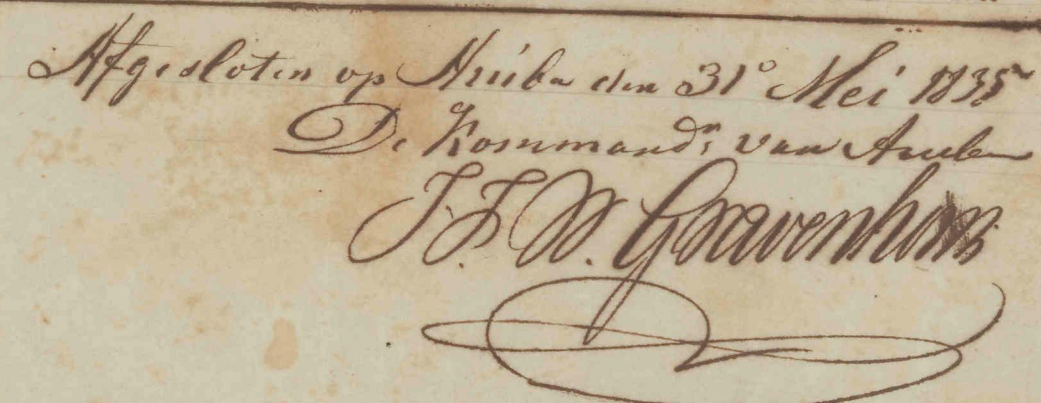 Afgesloten op Aruba den 31° Mei 1835
De Kommandr van Aruba
J. J. W. Gravenhorst